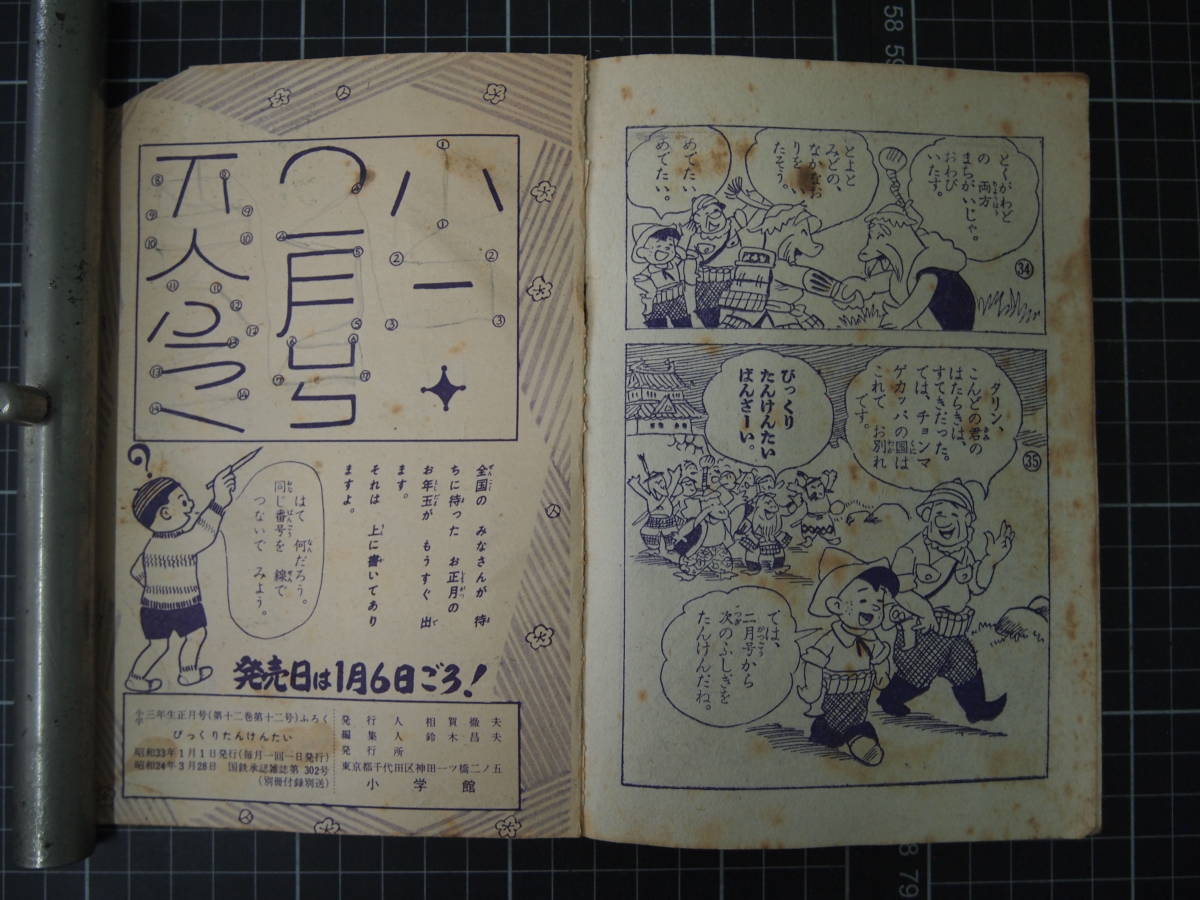 とくがわど
の 両方
まちがいじゃ。
おわび
いたす。
とよと
みどの、
なかなお
りを
たそう。
めでたい
めでたい。
34
タリン、
こんどの君の
はたらきは、
すてきだった。
では、チョンマ
ゲカッパの国は
これで お別れ
です。
びっくり
たんけんたい
ばんざーい。
35
では、
二月号から
次のふしぎを
たんけんだね。
2月号
全国の みなさんが 待
ちに待った お正月の
お年玉が もうすぐ 出
ます。
それは 上に書いてあり
ますよ。
はて 何だろう。
同じ番号を 線で
つないで みよう。
発売日は1月6日ごろ!
小学三年生正月号(第十二巻第十二号)ふろく
びっくりたんけんたい
昭和33年1月1日発行(毎月一回一日発行)
昭和24年3月28日 国鉄承認雑誌第 302号
(別冊付録別送)
発行人 相賀徹夫
編集人 鈴木昌夫
発行所
東京都千代田区神田一ツ橋二ノ五
小学館
58 59
79